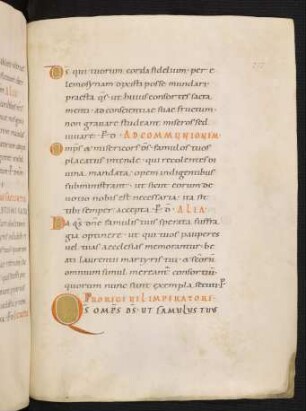 Ds qui tuorum corda fidelium per e
lemosynam
mundari
praesta qs ut huius consortes sacra
menti ad conscientiae suae fructum
non gravare studeant miseros sed
iuvare AD COMMUNIONEM
Omps & misericors ds famulos tuos
placatus intende qui recolentes di
vina mandata opem indigentibus
subministrant ut sicut eorum de
votio nobis est necessaria ita sit
tibi semper accepta ALIA
Da qs dne famulis tuis sperata suffra
gia optinere ut qui tuos pauperes
vel tuas aecclesias memorantur be
ati laurentii martyris tui & scorum
omnium simul mereant consortium
quorum nunc sunt exempla
PRO REGE VEL IMPERATORE
QS OMPS DS UT FAMULUS TUUS